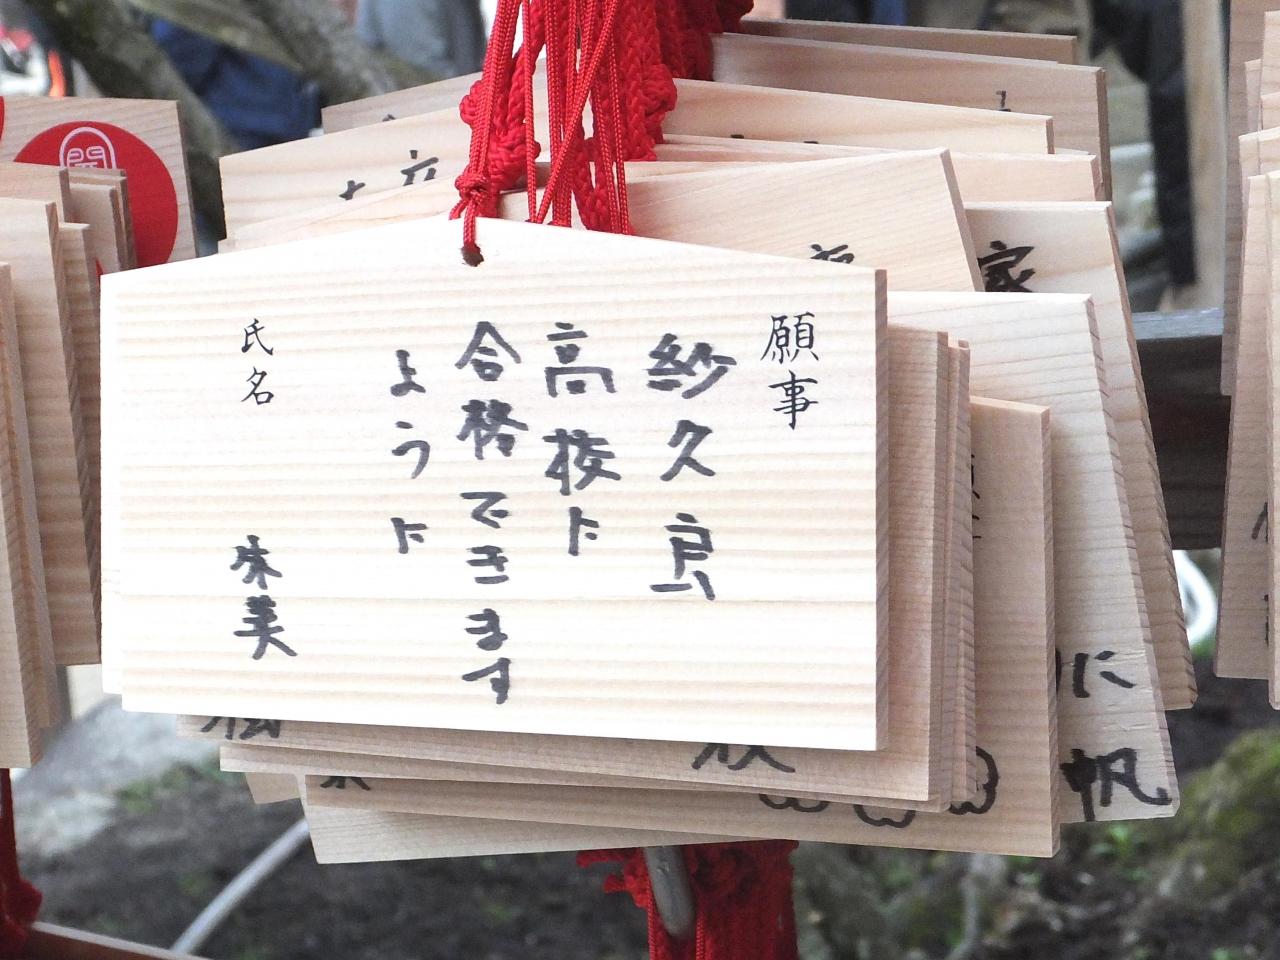 願事
紗久良
高校に
合格できます
ように
氏名
朱美
家
に
帆